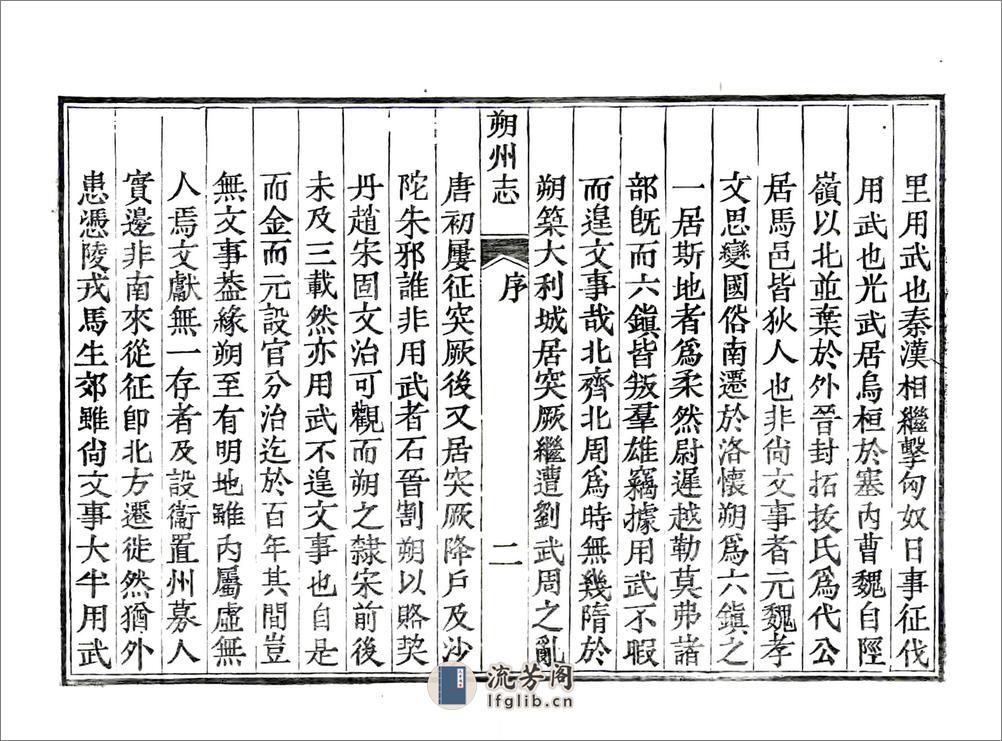 里用武也秦漢相繼擊匈奴日事征伐
用武也光武居烏桓於塞內曹魏自陘
嶺以北並棄於外晉封拓拔氏爲代公
居馬邑皆狄人也非尙文事者元魏孝
文思變國俗南遷於洛懷朔爲六鎭之
一居斯地者爲柔然尉遲越勒莫弗諸
部旣而六鎭皆叛羣雄竊據用武不暇
而遑文事哉北齊北周爲時無幾隋於
朔築大利城居突厥繼遭劉武周之亂
朔州志
序
二
唐初屢征突厥後又居突厥降戶及沙
陀朱邪誰非用武者石晉割朔以賂契
丹趙宋固文治可觀而朔之隸宋前後
未及三載然亦用武不遑文事也自是
而金而元設官分治迄於百年其間豈
無文事葢緣朔至有明地雖內屬虛無
人焉文獻無一存者及設衞置州募人
實邊非南來從征卽北方遷徙然猶外
患憑陵戎馬生郊雖尙文事大半用武
流芳阁
lfglib.cn